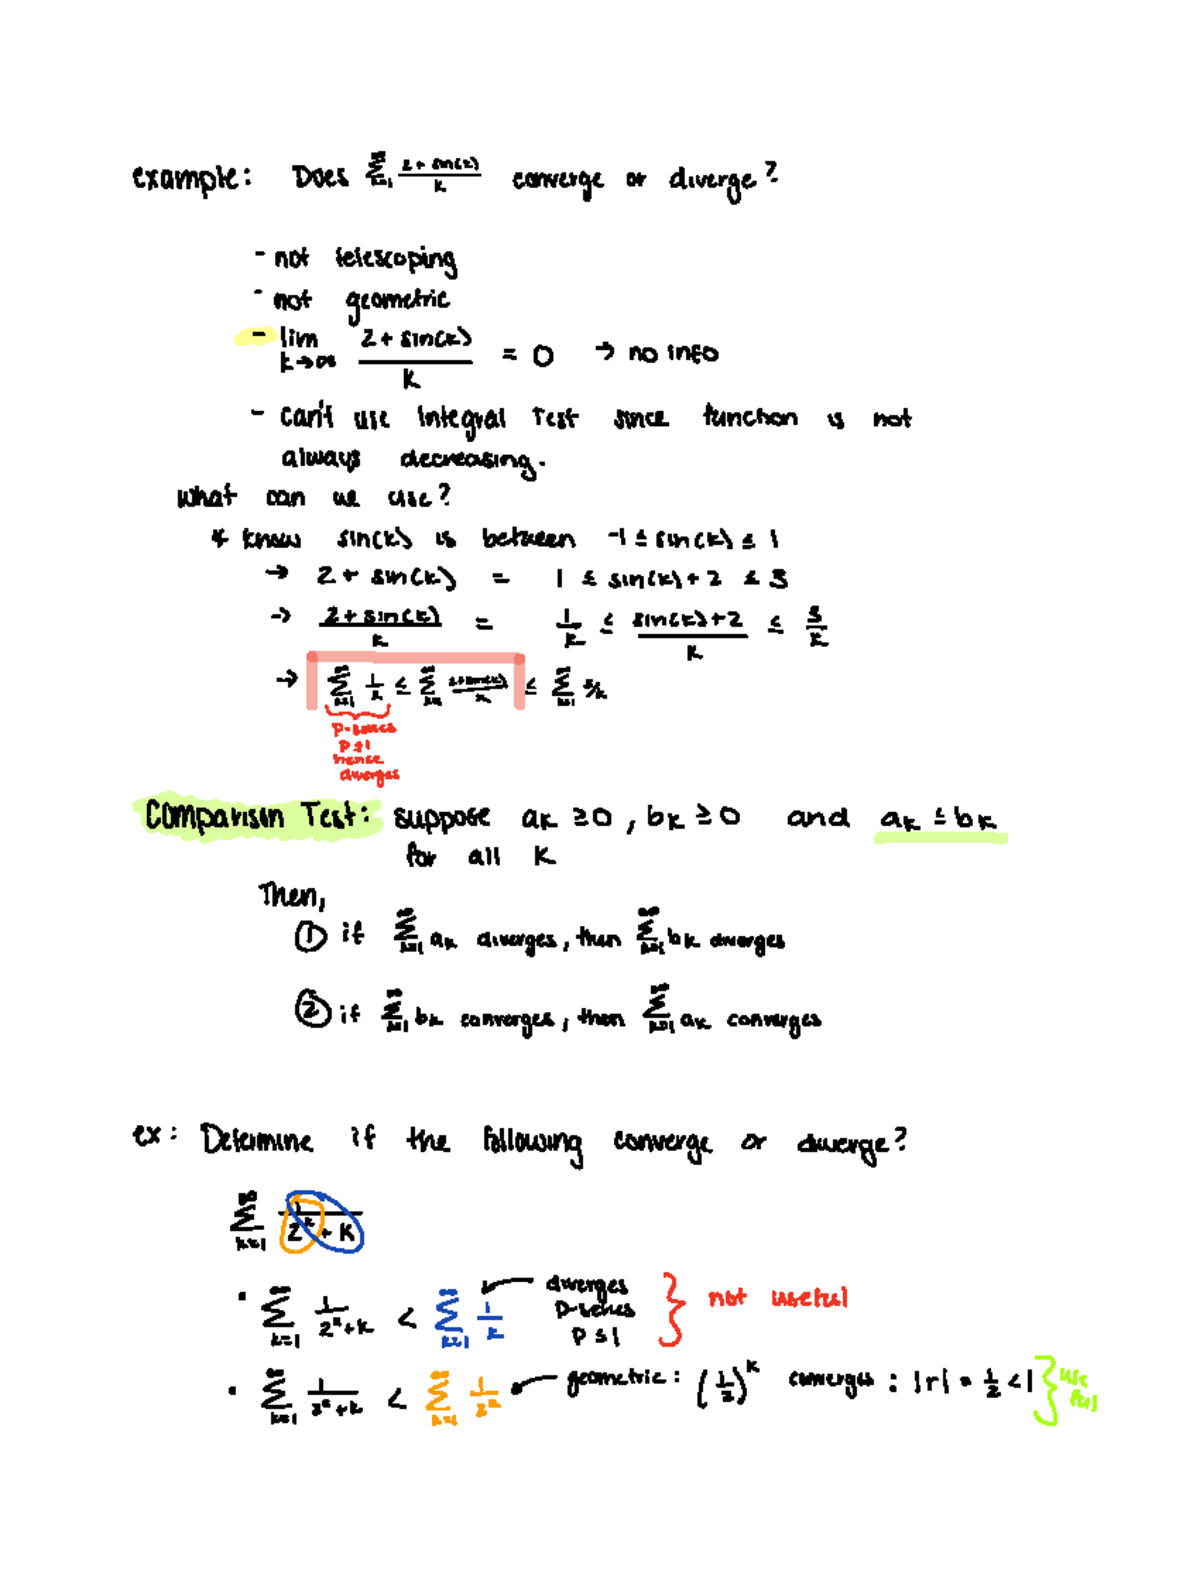 example: Does ∞Σk=1 2+sin(k)/k converge or diverge?
- not telescoping
- not geometric
- lim k→∞ 2+sin(k)/k = 0 → no info
- can't use Integral Test since function is not
always decreasing.
what can we use?
* know sin(k) is between -1 ≤ sin(k) ≤ 1
→ 2 + sin(k) = 1 ≤ sin(k)+2 ≤ 3
→ 2+sin(k)/k = 1/k ≤ sin(k)+2/k ≤ 3/k
→ ∞Σk=1 1/k ≤ ∞Σk=1 2+sin(k)/k ≤ ∞Σk=1 3/k
p-series
p≤1
hence
diverges
Comparison Test: suppose ak ≥0, bk ≥0 and ak ≤ bk
for all k
Then,
① if ∞Σk=1 ak diverges, then ∞Σk=1 bk diverges
② if ∞Σk=1 bk converges, then ∞Σk=1 ak converges
ex: Determine if the following converge or diverge?
∞Σk=1 1/2^k + k
• ∞Σk=1 1/2^k+k < ∞Σk=1 1/k diverges
p-series
p≤1
not useful
• ∞Σk=1 1/2^k+k < ∞Σk=1 1/2^k geometric: (1/2)^k converges: |r| = 1/2 <1
use
ful